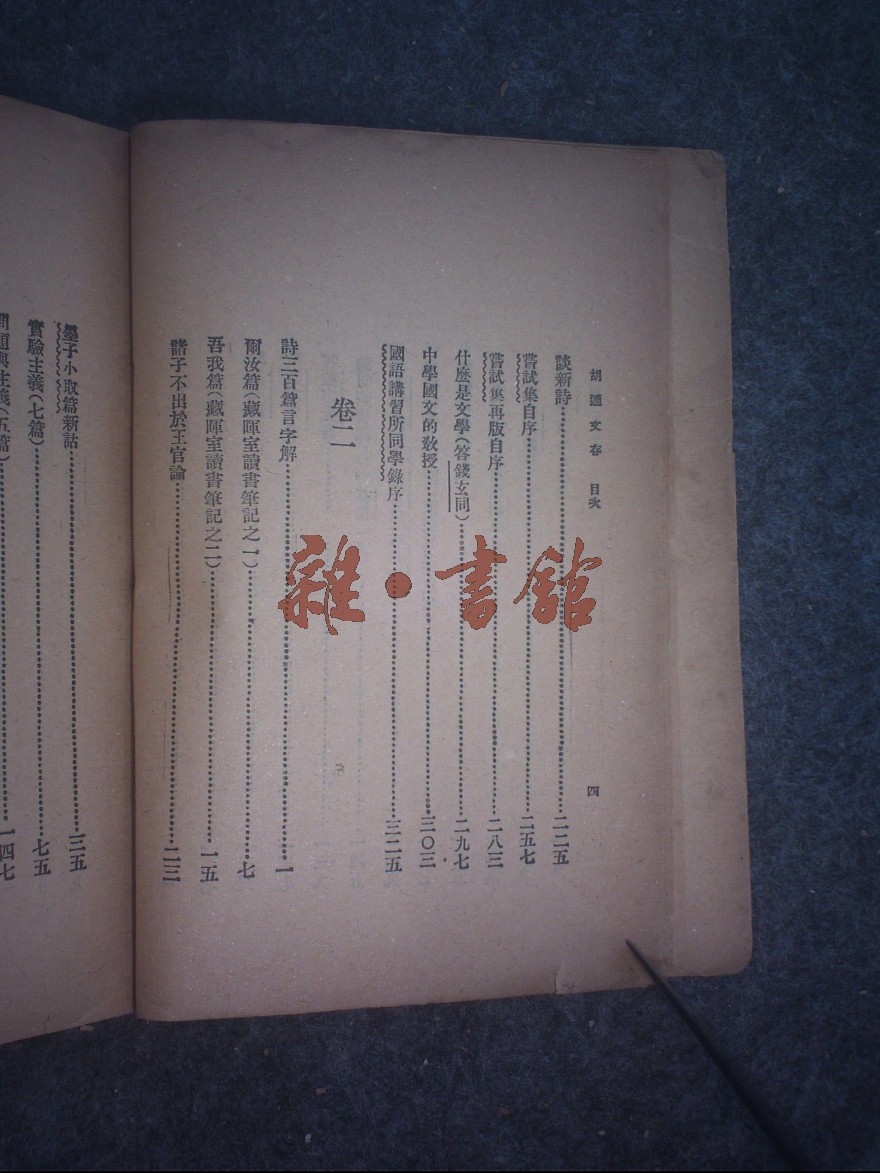 胡適文存 目次 四
談新詩……二二五
嘗試集自序……二五七
嘗試集再版自序……二八三
什麼是文學(答錢玄同)……二九七
中學國文的教授……三〇三
國語講習所同學錄序……三二五
卷二
詩三百篇言字解……一
爾汝篇(藏暉室讀書筆記之一)……七
吾我篇(藏暉室讀書筆記之二)……一五
諸子不出於王官論……二三
墨子小取篇新詁……三五
實驗主義(七篇)……七五
問題與主義(五篇)……一四七
雜·書館